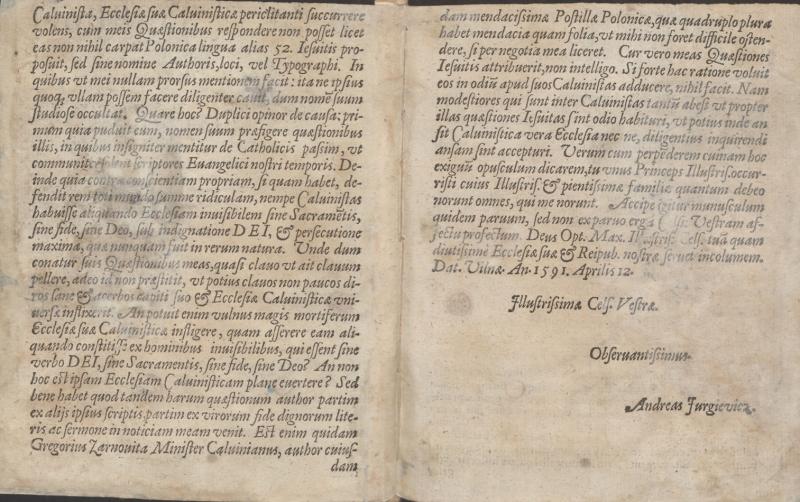 Caluinistæ, Ecclesiæ suæ Caluinisticæ periclitanti succurrere
volens, cum meis Quæstionibus respondere non posset licet
eas non nihil carpat Polonica lingua alias 52. Iesuitis pro-
posuit, sed sine nomine Authoris, loci, vel Typographi. In
quibus vt mei nullam prorsus mentionem facit: ita ne ipsius
quoq; vllam possem facere diligenter cauit, dum nomẽ suum
studiose occultat. Quare hoc? Duplici opinor de causa: pri-
mum quia puduit eum, nomen suum præfigere quæstionibus
illis, in quibus insigniter mentitur de Catholicis passim, vt
communiter solent scriptores Euangelici nostri temporis. De-
inde quia contra conscientiam propriam, si quam habet, de-
fendit rem toti mundo summe ridiculam, nempe Caluinistas
habuisse aliquando Ecclesiam inuisibilem sine Sacramẽtis,
sine fide, sine Deo, sub indignatione DEI, & persecutione
maxima, quæ nunquam fuit in rerum natura. Vnde dum
conatur suis Quæstionibus meas, quasi clauo vt ait clauum
pellere, adeo id non præstitit, vt potius clauos non paucos di-
ros sane & acerbos capiti suo & Ecclesiæ Caluinisticæ vni-
uersæ infixerit. An potuit enim vulnus magis mortiferum
Ecclesiæ suæ Caluinisticæ infligere, quam asserere eam ali-
quando constitisse ex hominibus inuisibilibus, qui essent sine
verbo DEI, sine Sacramentis, sine fide, sine Deo? An non
hoc est ipsam Ecclesiam Caluinisticam plane euertere? Sed
bene habet quod tandem harum quæstionum author partim
ex alijs ipsius scriptis, partim ex virorum fide dignorum lite-
ris ac sermone in noticiam meam venit. Est enim quidam
Gregorius Zarnouita Minister Caluinianus, author cuius-
dam
dam mendacissimæ Postillæ Polonicæ, quæ quadruplo plura
habet mendacia quam folia, vt mihi non foret difficile osten-
dere, si per negotia mea liceret. Cur vero meas Quæstiones
Iesuitis attribuerit, non intelligo. Si forte hac ratione voluit
eos in odiũ apud suos Caluinistas adducere, nihil facit. Nam
modestiores qui sunt inter Caluinistas tantũ abest vt propter
illas quæstiones Iesuitas sint odio habituri, vt potius inde an
sit Caluinistica vera Ecclesia nec ne, diligentius inquirendi
ansam sint accepturi. Verum cum perpẽderem cuinam hoc
exiguũ opusculum dicarem, tu vnus Princeps Illustriss. occur-
risti cuius Illustriss. & pientissimæ familiæ quantum debeo
norunt omnes, qui me norunt. Accipe igitur munusculum
quidem paruum, sed non ex paruo erga Cels. Vestram af-
fectu profectum. Deus Opt. Max. Illustriss. Cels. tuã quam
diutissime Ecclesiæ suæ & Reipub. nostræ seruet incolumem.
Dat. Vilnæ An. 1591. Aprilis 12.
Illustrissimæ Cels. Vestræ.
Obseruantissimus.
Andreas Jurgieuicz.